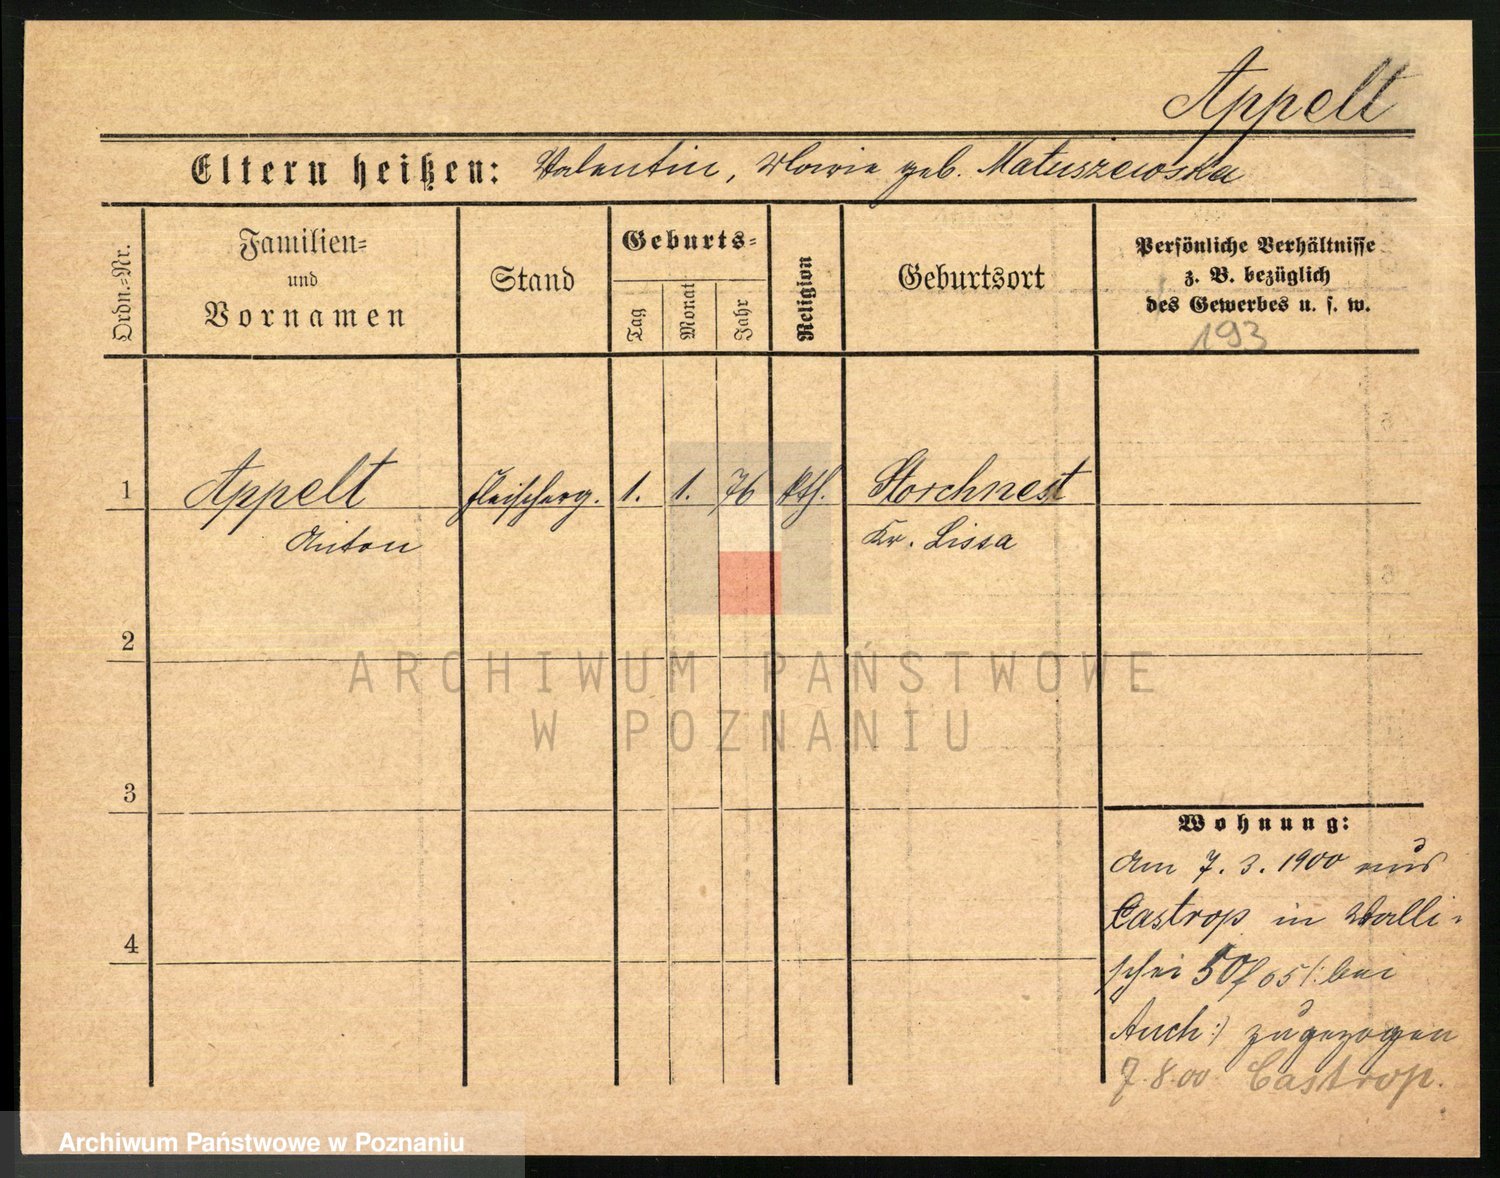 Appelt
Eltern heißen: Valentin, Marie geb. Matuszewska
Ordn.-Nr.
Familien-
und
Vornamen
Stand
Geburts-
Tag
Monat
Jahr
Religion
Geburtsort
Persönliche Verhältnisse
z. B. bezüglich
des Gewerbes u. s. w.
193
1 Appelt Fleischerg. 1. 1. 76 kth. Storchnest
Anton Kr. Lissa
2
ARCHIWUM PAŃSTWOWE
W POZNANIU
3
Wohnung:
Am 7. 3. 1900 aus
Castrop in Walli-
4
schei 50/ 65 /: bei
Auch :/ zugezogen
7.8.00 Castrop.
Archiwum Państwowe w Poznaniu